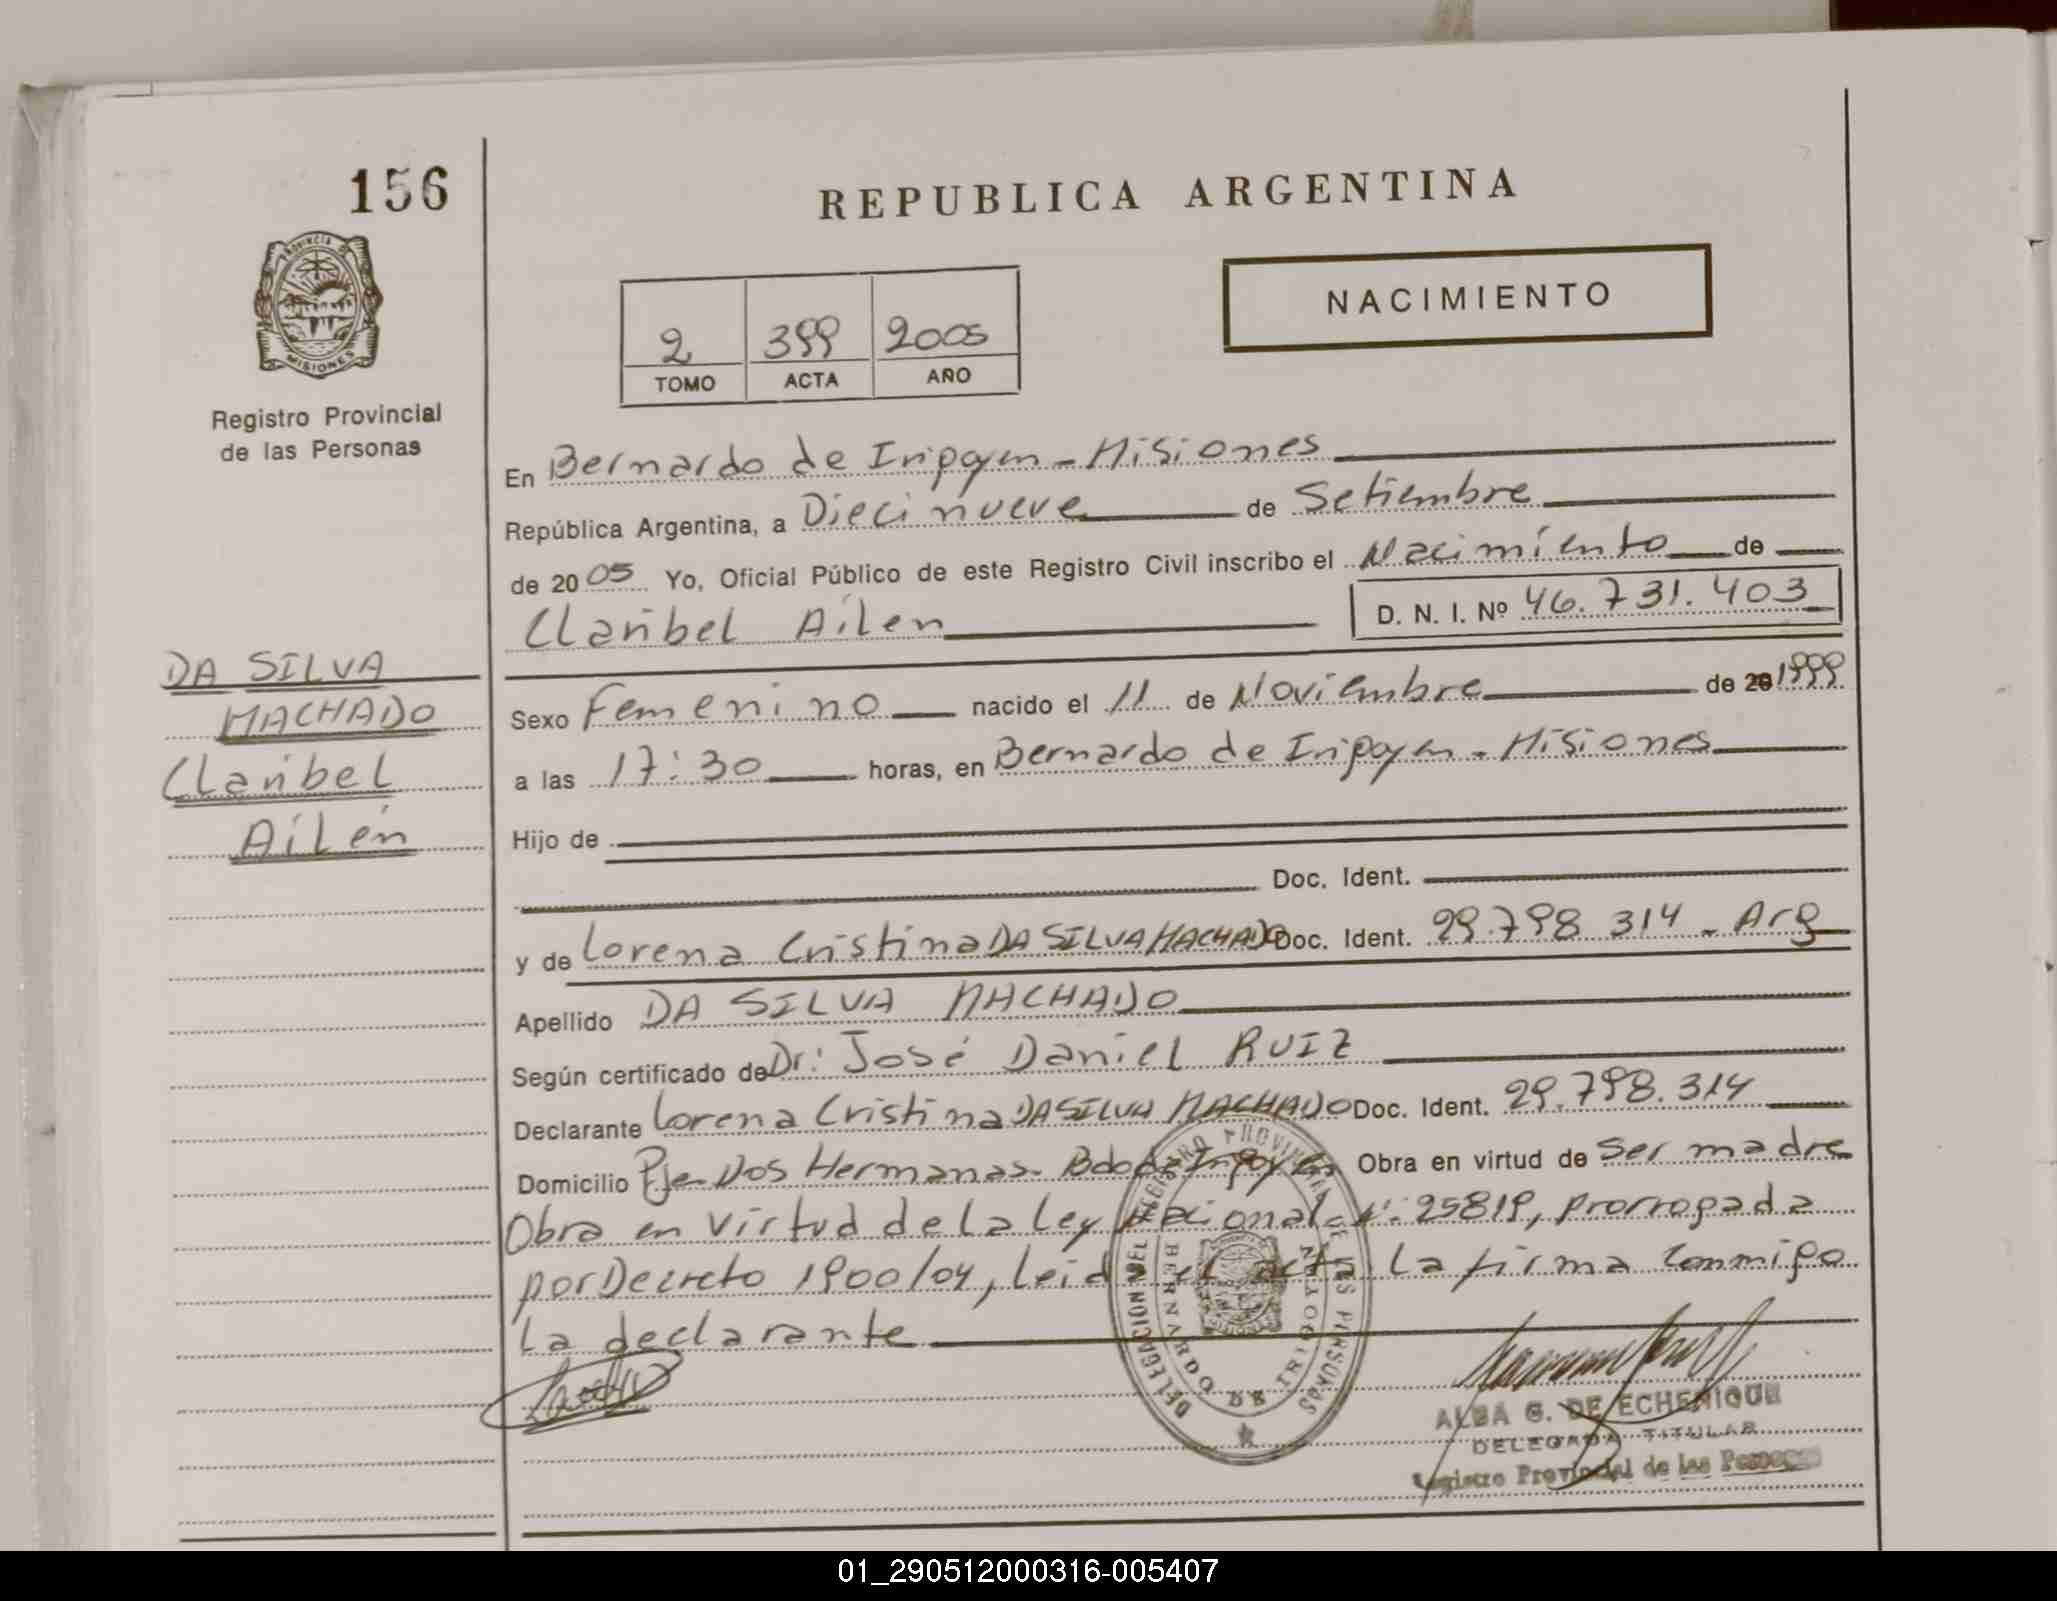 156
REPUBLICA ARGENTINA
PROVINCIA DE
MISIONES
Registro Provincial
de las Personas
NACIMIENTO
2 399 2005
TOMO ACTA AÑO
En Bernardo de Irigoyen - Misiones
República Argentina, a Diecinueve de Setiembre
de 2005 Yo, Oficial Público de este Registro Civil inscribo el Nacimiento de
Claribel Ailen D. N. I. Nº 46.731.403
DA SILVA
MACHADO
Claribel
Ailén
Sexo Femenino nacido el 11 de Noviembre de 20 1999
a las 17:30 horas, en Bernardo de Irigoyen - Misiones
Hijo de
Doc. Ident.
y de Lorena Cristina DA SILVA MACHADO Doc. Ident. 29.798 314 - Arg
Apellido DA SILVA MACHADO
Según certificado de Dr: José Daniel RUIZ
Declarante Lorena Cristina DA SILVA MACHADO Doc. Ident. 29.798.314
Domicilio Pje Dos Hermanas - Bdo de Irigoyen Obra en virtud de ser madre
Obra en virtud de la Ley Nacional Nº: 25819, prorrogada
por Decreto 1900/04, leida el acta la firma conmigo
la declarante
DELEGACION DEL REGISTRO PROVINCIAL DE LAS PERSONAS
BERNARDO DE IRIGOYEN
ALBA G. DE ECHENIQUE
DELEGADA TITULAR
Registro Provincial de las Personas
01_290512000316-005407